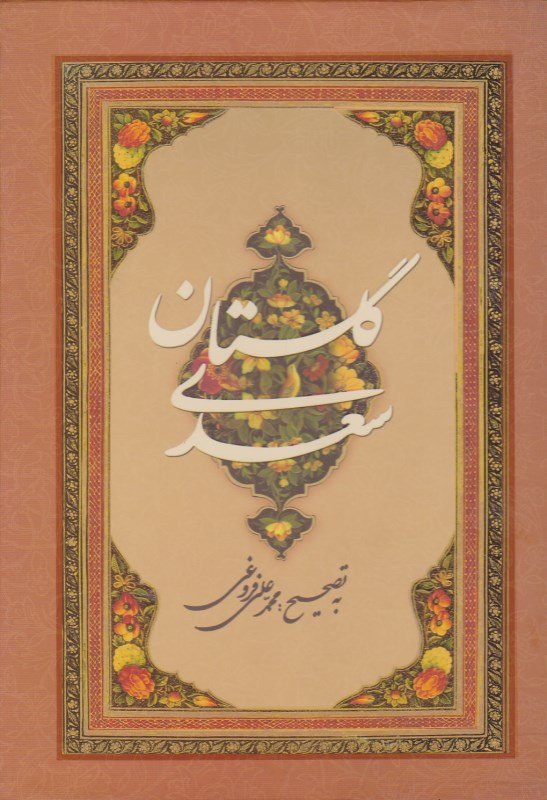 گلستان
سعدی
به تصحیح: محمدعلی فروغی